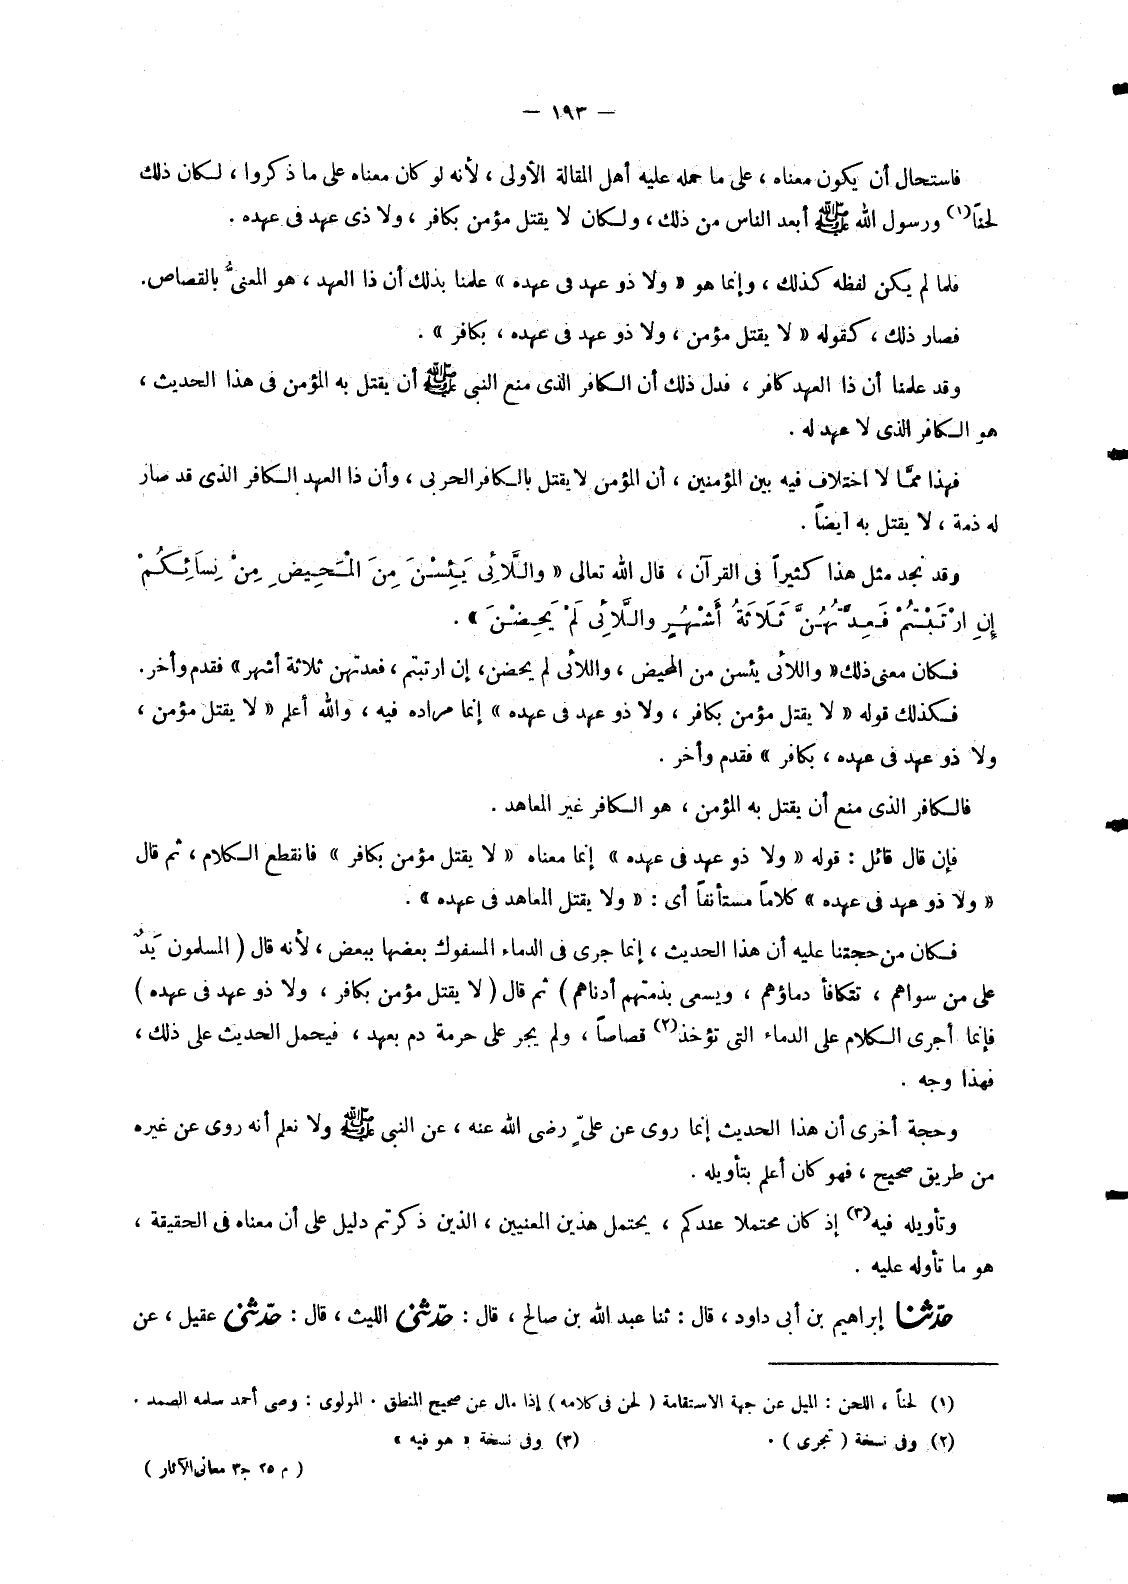 — ١٩٣ —
فاستحال أن يكون معناه ، على ما حمله عليه أهل المقالة الأولى ، لأنه لو كان معناه على ما ذكروا ، لكان ذلك
لحناً(١) ورسول الله ﷺ أبعد الناس من ذلك ، ولكان لا يقتل مؤمن بكافر ، ولا ذى عهد فى عهده .
فلما لم يكن لفظه كذلك ، وإنما هو « ولا ذو عهد فى عهده » علمنا بذلك أن ذا العهد ، هو المعنىُّ بالقصاص.
فصار ذلك ، كقوله « لا يقتل مؤمن ، ولا ذو عهد فى عهده ، بكافر » .
وقد علمنا أن ذا العهد كافر ، فدل ذلك أن الكافر الذى منع النبى ﷺ أن يقتل به المؤمن فى هذا الحديث ،
هو الكافر الذى لا عهد له .
فهذا ممَّا لا اختلاف فيه بين المؤمنين ، أن المؤمن لا يقتل بالكافر الحربى ، وأن ذا العهد الكافر الذى قد صار
له ذمة ، لا يقتل به أيضاً .
وقد نجد مثل هذا كثيراً فى القرآن ، قال الله تعالى « واللَّائِى يَئِسْنَ مِنَ الْمَحِيضِ مِنْ نِسَائِكُمْ
إِنِ ارْتَبْتُمْ فَعِدَّتُهُنَّ ثَلَاثَةُ أَشْهُرٍ واللَّائِى لَمْ يَحِضْنَ » .
فكان معنى ذلك « واللائى يئسن من المحيض ، واللائى لم يحضن، إن ارتبتم ، فعدتهن ثلاثة أشهر » فقدم وأخر.
فكذلك قوله « لا يقتل مؤمن بكافر ، ولا ذو عهد فى عهده » إنما مراده فيه ، والله أعلم « لا يقتل مؤمن ،
ولا ذو عهد فى عهده ، بكافر » فقدم وأخر .
فالكافر الذى منع أن يقتل به المؤمن ، هو الكافر غير المعاهد .
فإن قال قائل : قوله « ولا ذو عهد فى عهده » إنما معناه « لا يقتل مؤمن بكافر » فانقطع الكلام ، ثم قال
« ولا ذو عهد فى عهده » كلاماً مستأنفاً أى : « ولا يقتل المعاهد فى عهده » .
فكان من حجتنا عليه أن هذا الحديث ، إنما جرى فى الدماء المسفوك بعضها ببعض ، لأنه قال ( المسلمون يَدٌ
على من سواهم ، تتكافأ دماؤهم ، ويسعى بذمتهم أدناهم ) ثم قال ( لا يقتل مؤمن بكافر ، ولا ذو عهد فى عهده )
فإنما أجرى الكلام على الدماء التى تؤخذ(٢) قصاصاً ، ولم يجر على حرمة دم بعهد ، فيحمل الحديث على ذلك ،
فهذا وجه .
وحجة أخرى أن هذا الحديث إنما روى عن علىٍّ رضى الله عنه ، عن النبى ﷺ ولا نعلم أنه روى عن غيره
من طريق صحيح ، فهو كان أعلم بتأويله .
وتأويله فيه(٣) إذ كان محتملا عندكم ، يحتمل هذين المعنيين ، الذين ذكرتم دليل على أن معناه فى الحقيقة ،
هو ما تأوله عليه .
حدّثنا إبراهيم بن أبى داود ، قال : ثنا عبد الله بن صالح ، قال : حدّثنى الليث ، قال : حدّثنى عقيل ، عن
(١) لحناً ، اللحن : الميل عن جهة الاستقامة ( لحن فى كلامه ) إذا مال عن صحيح المنطق . المولوى : وصى أحمد سلمه الصمد .
(٢) وفى نسخة ( تجرى ) . (٣) وفى نسخة « هو فيه »
( م ٢٥ ج٣ معانى الآثار )